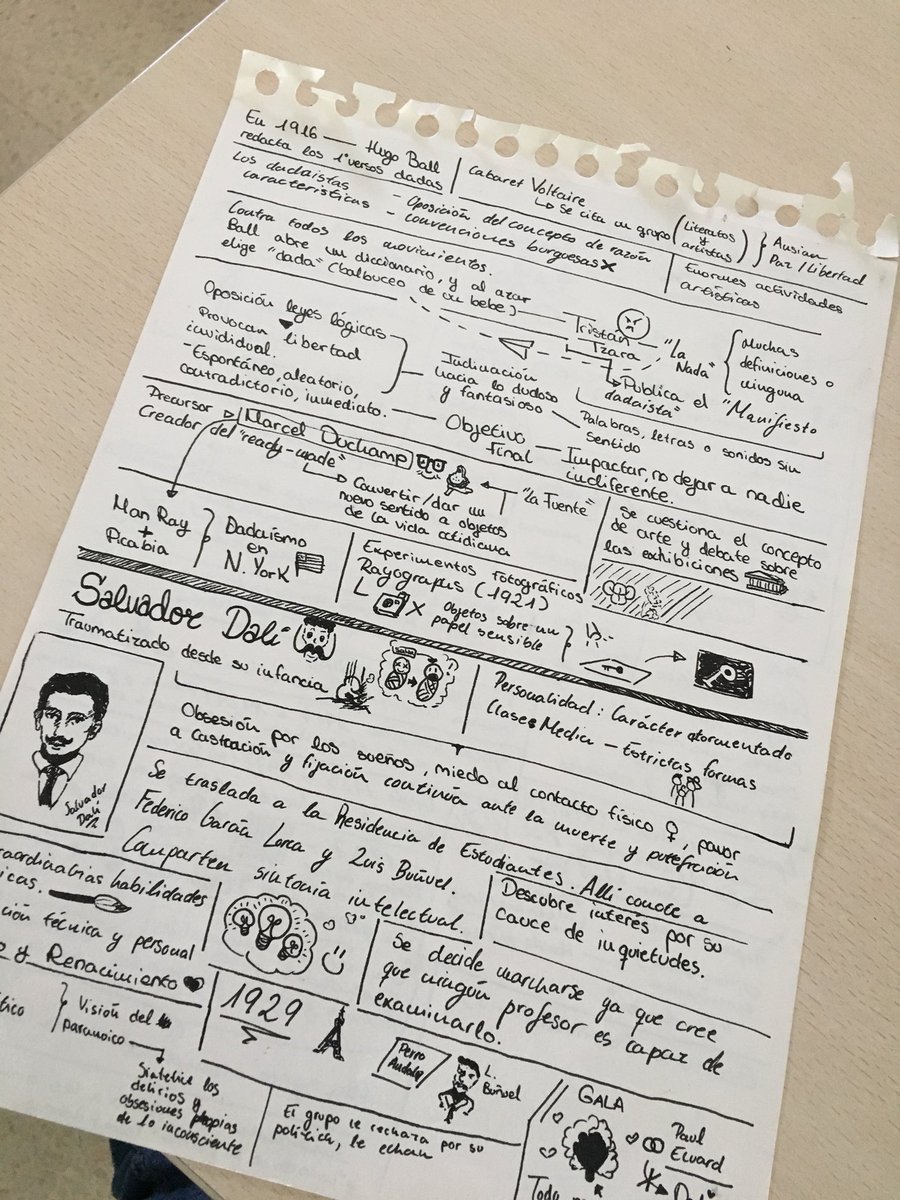 En 1916 — Hugo Ball
redacta los 1º versos dadas
Cabaret Voltaire
↳ Se cita un grupo (Literatos y artistas) } Ansian Paz / Libertad
Los dadaístas — Oposición del concepto de razón
características — convenciones burguesas X
Enormes actividades
artísticas
Contra todos los movimientos.
Ball abre un diccionario, y al azar
elige "dada" (balbuceo de un bebe)
Tristán
Tzara — "La
Nada"
Muchas
definiciones o
ninguna
Publica el "Manifiesto
dadaísta"
Palabras, letras o sonidos sin
sentido
Oposición leyes lógicas
Provocan libertad
invididual.
- Espontáneo, aleatorio,
contradictorio, inmediato.
Inclinación
hacia lo dudoso
y fantasioso
Objetivo
final
Impactar, no dejar a nadie
indiferente.
Precursor → Marcel Duchamp
Creador del "ready-made"
↳ Convertir/dar un
nuevo sentido a objetos
de la vida cotidiana
"La Fuente"
Se cuestiona el concepto
de arte y debate sobre
las exhibiciones
Man Ray
+
Picabia
Dadaísmo
en
N. York
Experimentos fotográficos
Rayographs (1921)
X Objetos sobre un
papel sensible
Salvador Dalí
Traumatizado desde su infancia
Personalidad: Carácter atormentado
Clase Media — Estrictas formas
Salvador
Dalí
Obsesión por los sueños, miedo al contacto físico ♀, pavor
a castración y fijación continua ante la muerte y putrefracción
Se traslada a la Residencia de Estudiantes. Allí conoce a
Federico García Lorca y Luis Buñuel.
Comparten sintonía intelectual.
Descubre interés por su
cauce de inquietudes.
habilidades
técnica y personal
y Renacimiento
Se decide marcharse ya que cree
que ningún profesor es capaz de
examinarlo.
1929
Visión del
paranoico
delirios y
obsesiones propias
de lo inconsciente
Perro
Andaluz
L.
Buñuel
El grupo le rechaza por su
política, le echan
GALA
Paul
Eluard